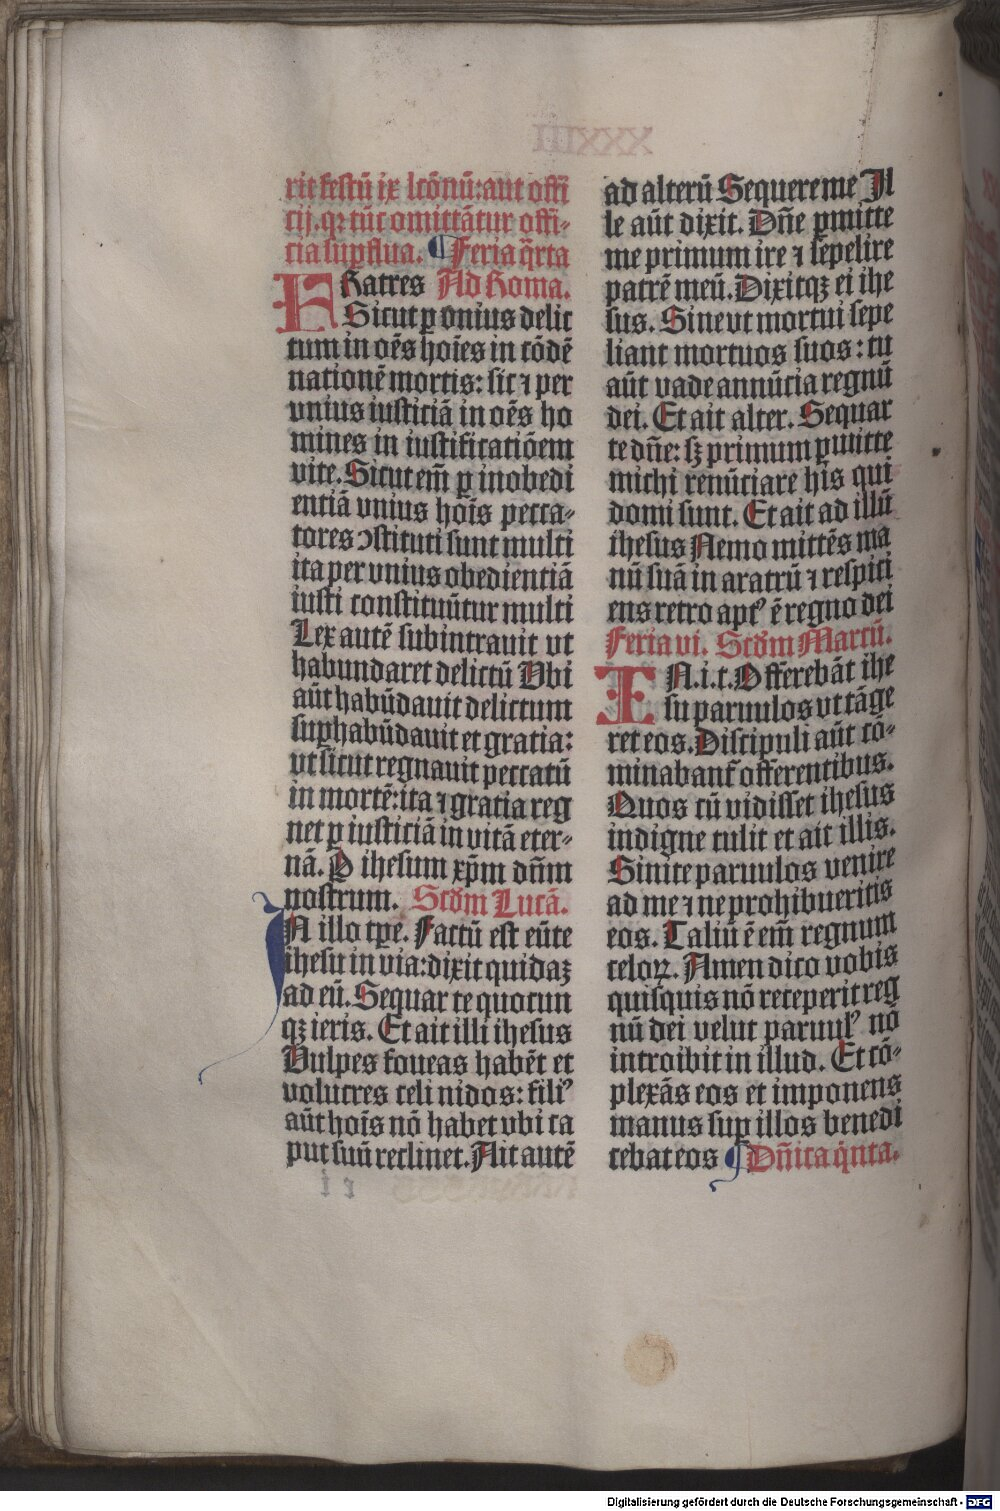 rit festū ix lcōnū: aut offi
cij. qꝛ tūc omittātur offi⸗
cia suꝑflua. ¶ Feria q̄rta
FRatres Ad Roma.
Sicut ꝑ vnius delic
tum in oēs hoīes in cōdē
nationē mortis: sic ⁊ per
vnius iusticiā in oēs ho
mines in iustificatiōem
vite. Sicut em̄ ꝑ inobedi
entiā vnius hoīs pecca⸗
tores ↄstituti sunt multi
ita per vnius obedientiā
iusti constituūtur multi
Lex autē subintrauit vt
habundaret delictū Vbi
aūt habūdauit delictum
suꝑhabūdauit et gratia:
vt sicut regnauit peccatū
in mortē: ita ⁊ gratia reg
net ꝑ iusticiā in vitā eter⸗
nā. P ihesum xp̄m dn̄m
nostrum. Scd̄m Lucā.
IN illo tp̄e. Factū est eūte
ihesu in via: dixit quidaꝫ
ad eū. Sequar te quocun
qꝫ ieris. Et ait illi ihesus
Vulpes foueas habēt et
volucres celi nidos: filiꝰ
aūt hoīs nō habet vbi ca
put suū reclinet. Ait autē
ad alterū Sequere me Il
le aūt dixit. Dn̄e ꝑmitte
me primum ire ⁊ sepelire
patrē meū. Dixitqꝫ ei ihe
sus. Sine vt mortui sepe
liant mortuos suos: tu
aūt vade annūcia regnū
dei. Et ait alter. Sequar
te dn̄e: sꝫ primum ꝑmitte
michi renūciare his qui
domi sunt. Et ait ad illū
ihesus Nemo mittēs ma
nū suā in aratrū ⁊ respici
ens retro aptꝰ ē regno dei
Feria vi. Scd̄m Marcū.
IN. i. t. Offerebāt ihe
su paruulos vt tāge
ret eos. Discipuli aūt cō⸗
minabant̄ offerentibus.
Quos cū vidisset ihesus
indigne tulit et ait illis.
Sinite paruulos venire
ad me ⁊ ne prohibueritis
eos. Taliū ē em̄ regnum
celoꝝ. Amen dico vobis
quisquis nō receperit reg
nū dei velut paruulꝰ nō
introibit in illud. Et cō⸗
plexās eos et imponens
manus suꝑ illos benedi
cebat eos ¶ Dn̄ica q̄nta.
Digitalisierung gefördert durch die Deutsche Forschungsgemeinschaft - DFG